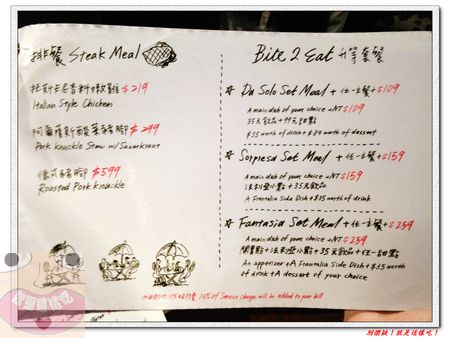 排餐 Steak Meal
托斯卡尼香料嫩雞 $219
Italian Style Chicken
阿爾薩斯酸菜豬腳 $299
Pork Knuckle Stew w/ Sauerkraut
德式豬腳 $599
Roasted Pork Knuckle
Bite 2 Eat 升等套餐
☆ Da Solo Set Meal + 任一主餐 + $109
A main dish of your choice + NT $109
35元飲品 + 89元甜點
$35 worth of drink + $89 worth of dessert
☆ Sorpresa Set Meal + 任一主餐 + $159
A main dish of your choice + NT $159
法利亞小點 + 35元飲品
A Frantalia Side Dish + $35 worth of drink
☆ Fantasia Set Meal + 任一主餐 + $259
A main dish of your choice + NT $259
開胃點 + 法利亞小點 + 35元飲品 + 任一甜點
An appetizer + A Frantalia Side Dish + $35 worth
of drink + A dessert of your choice
10% of Service charge will be added to your bill
別懷疑！就是這樣吃！